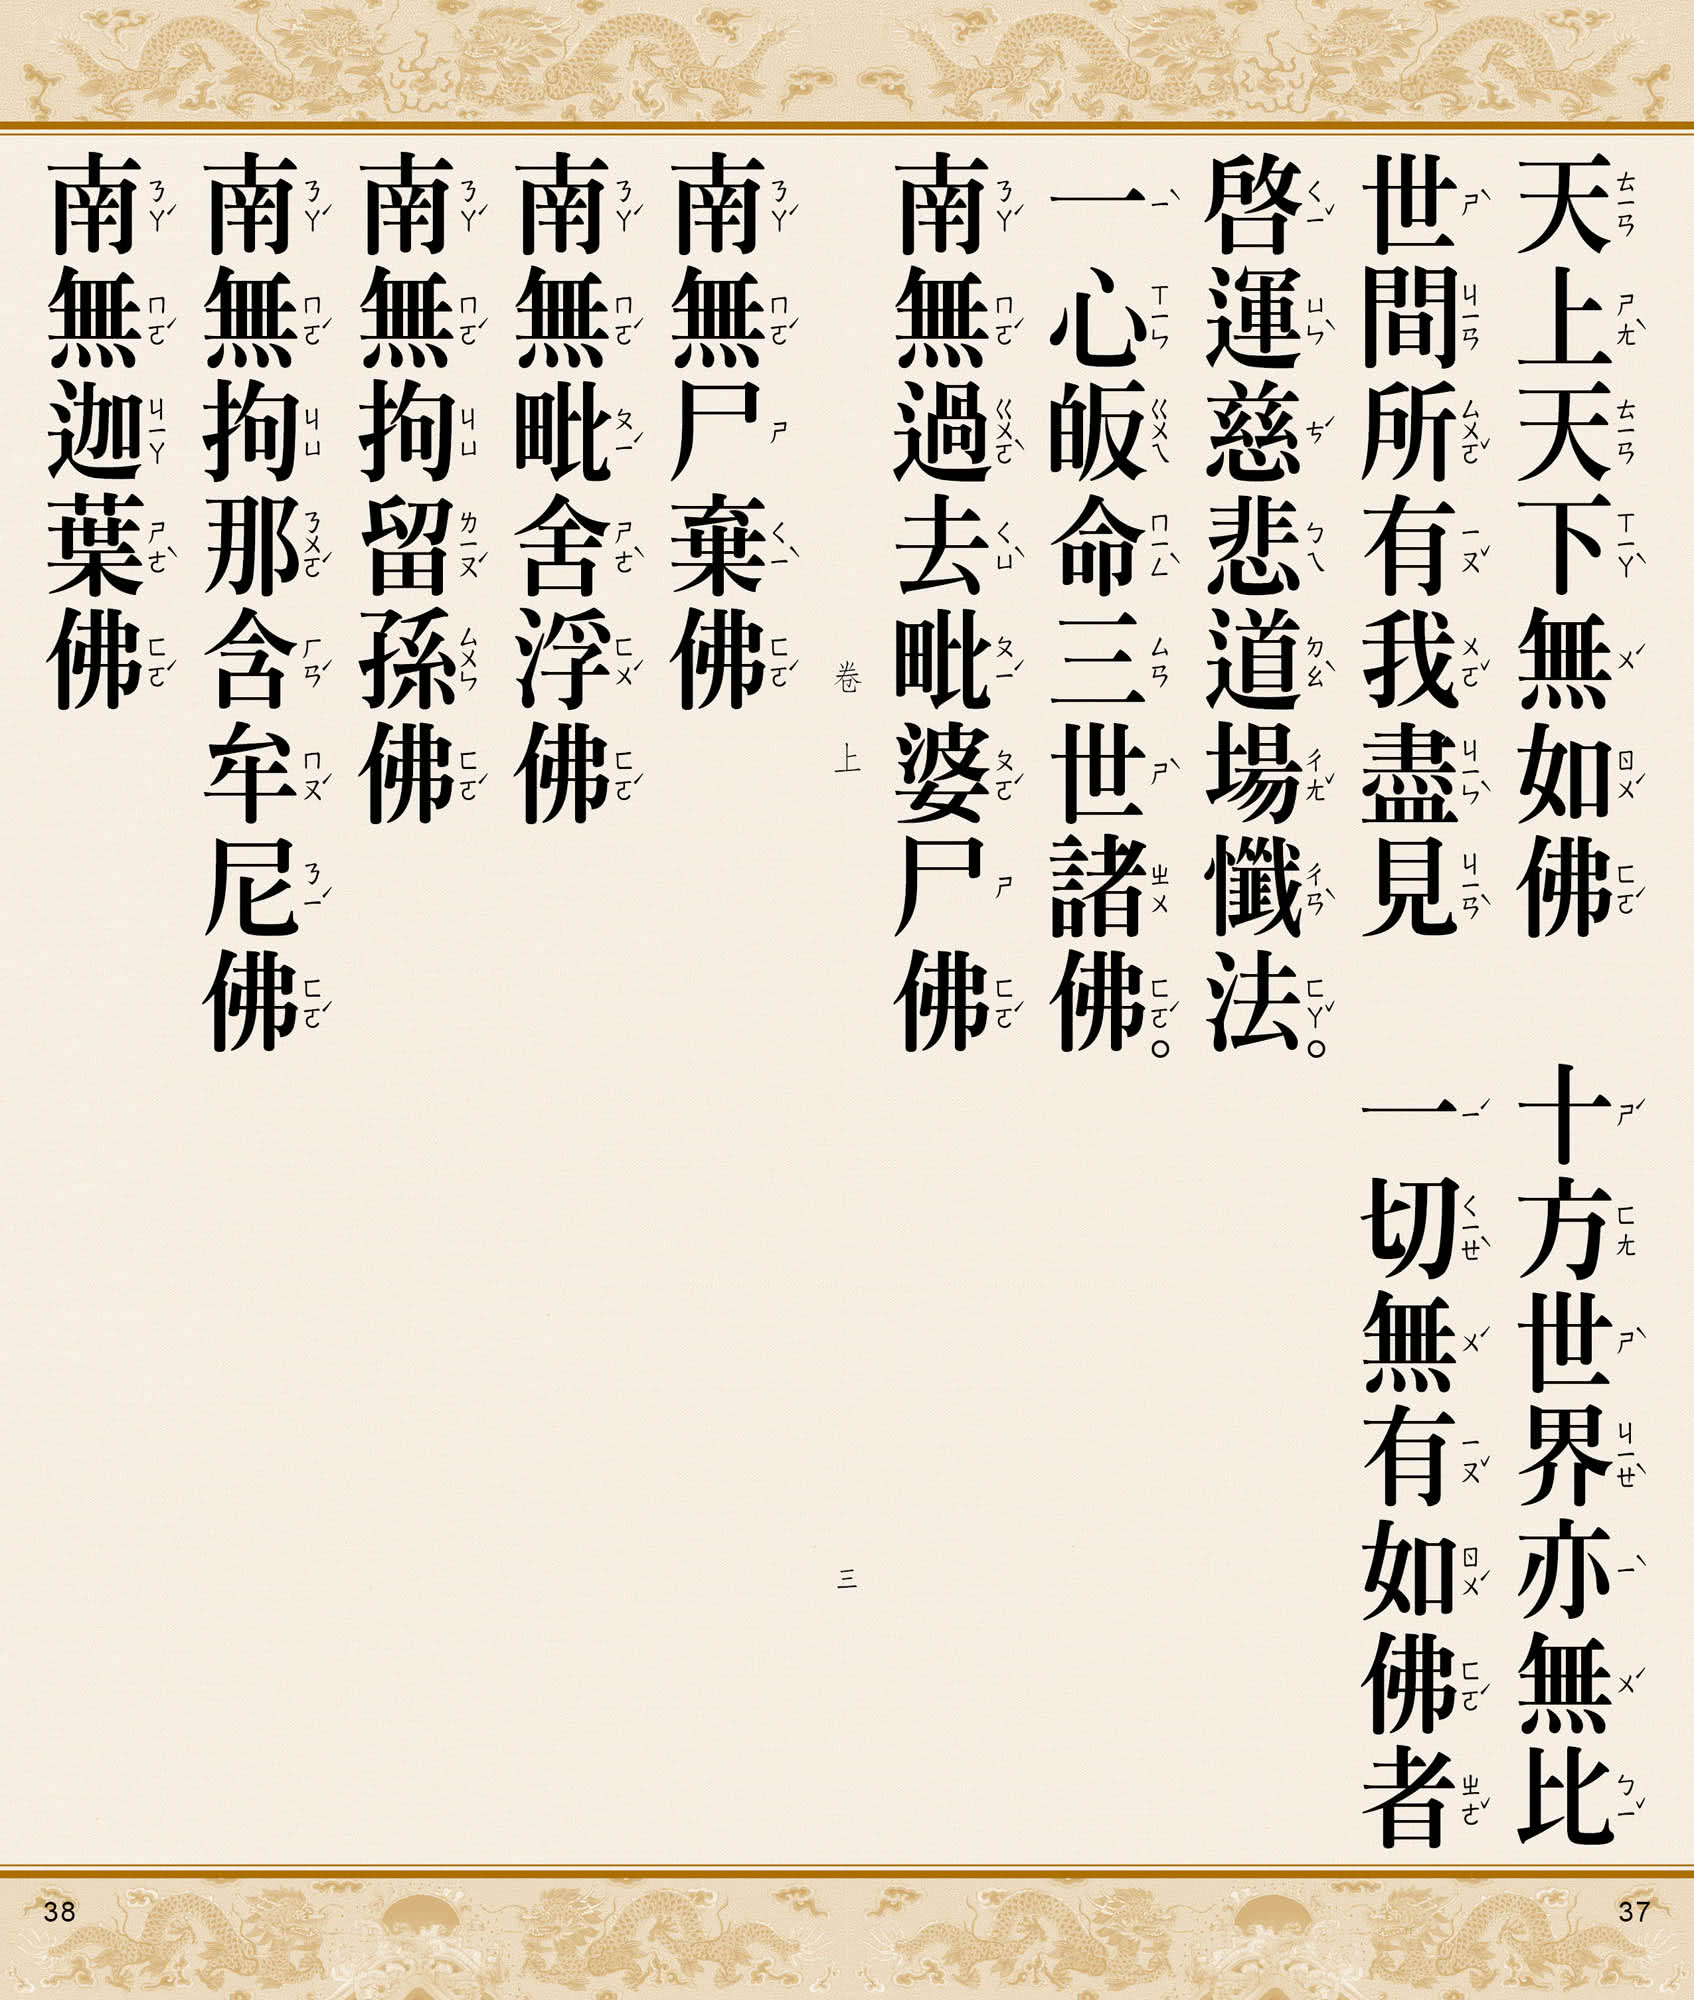 天上天下無如佛　十方世界亦無比
世間所有我盡見　一切無有如佛者
啓運慈悲道場懺法。
一心皈命三世諸佛。
南無過去毗婆尸佛
卷上　三
南無尸棄佛
南無毗舍浮佛
南無拘留孫佛
南無拘那含牟尼佛
南無迦葉佛
37
38